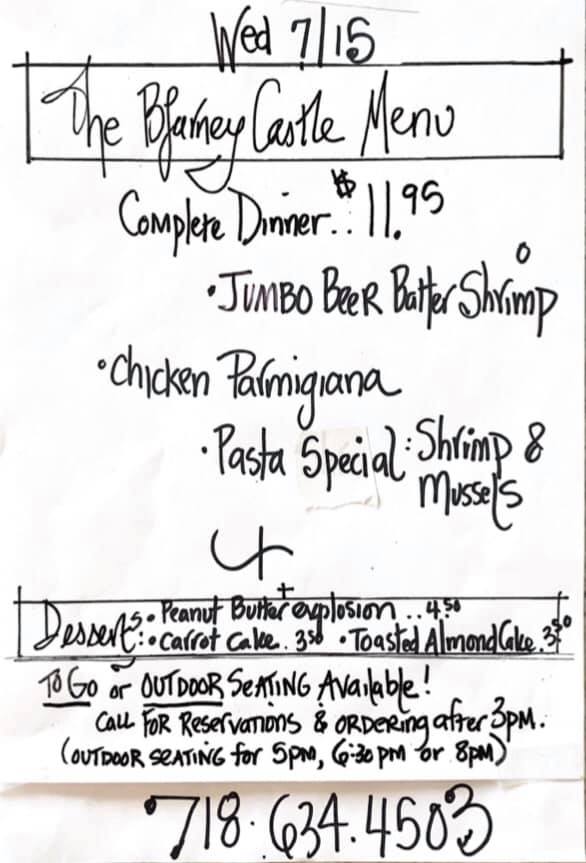 Wed 7/15
The Blarney Castle Menu
Complete Dinner.. $11.95
• JUMBO BeeR Batter Shrimp
• Chicken Parmigiana
• Pasta Special: Shrimp &
Mussels
Desserts: • Peanut Butter explosion .. 4.50
• Carrot Cake. 3.50 • Toasted Almond Cake. 3.50
To Go or OUTDOOR SEATING Available!
CALL FOR Reservations & ORDERING after 3PM.
(OUTDOOR SEATING for 5PM, 6:30 PM or 8PM)
718.634.4503